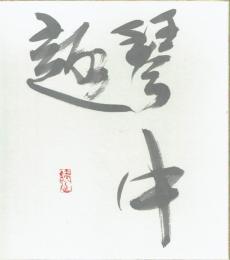 琴中
趣